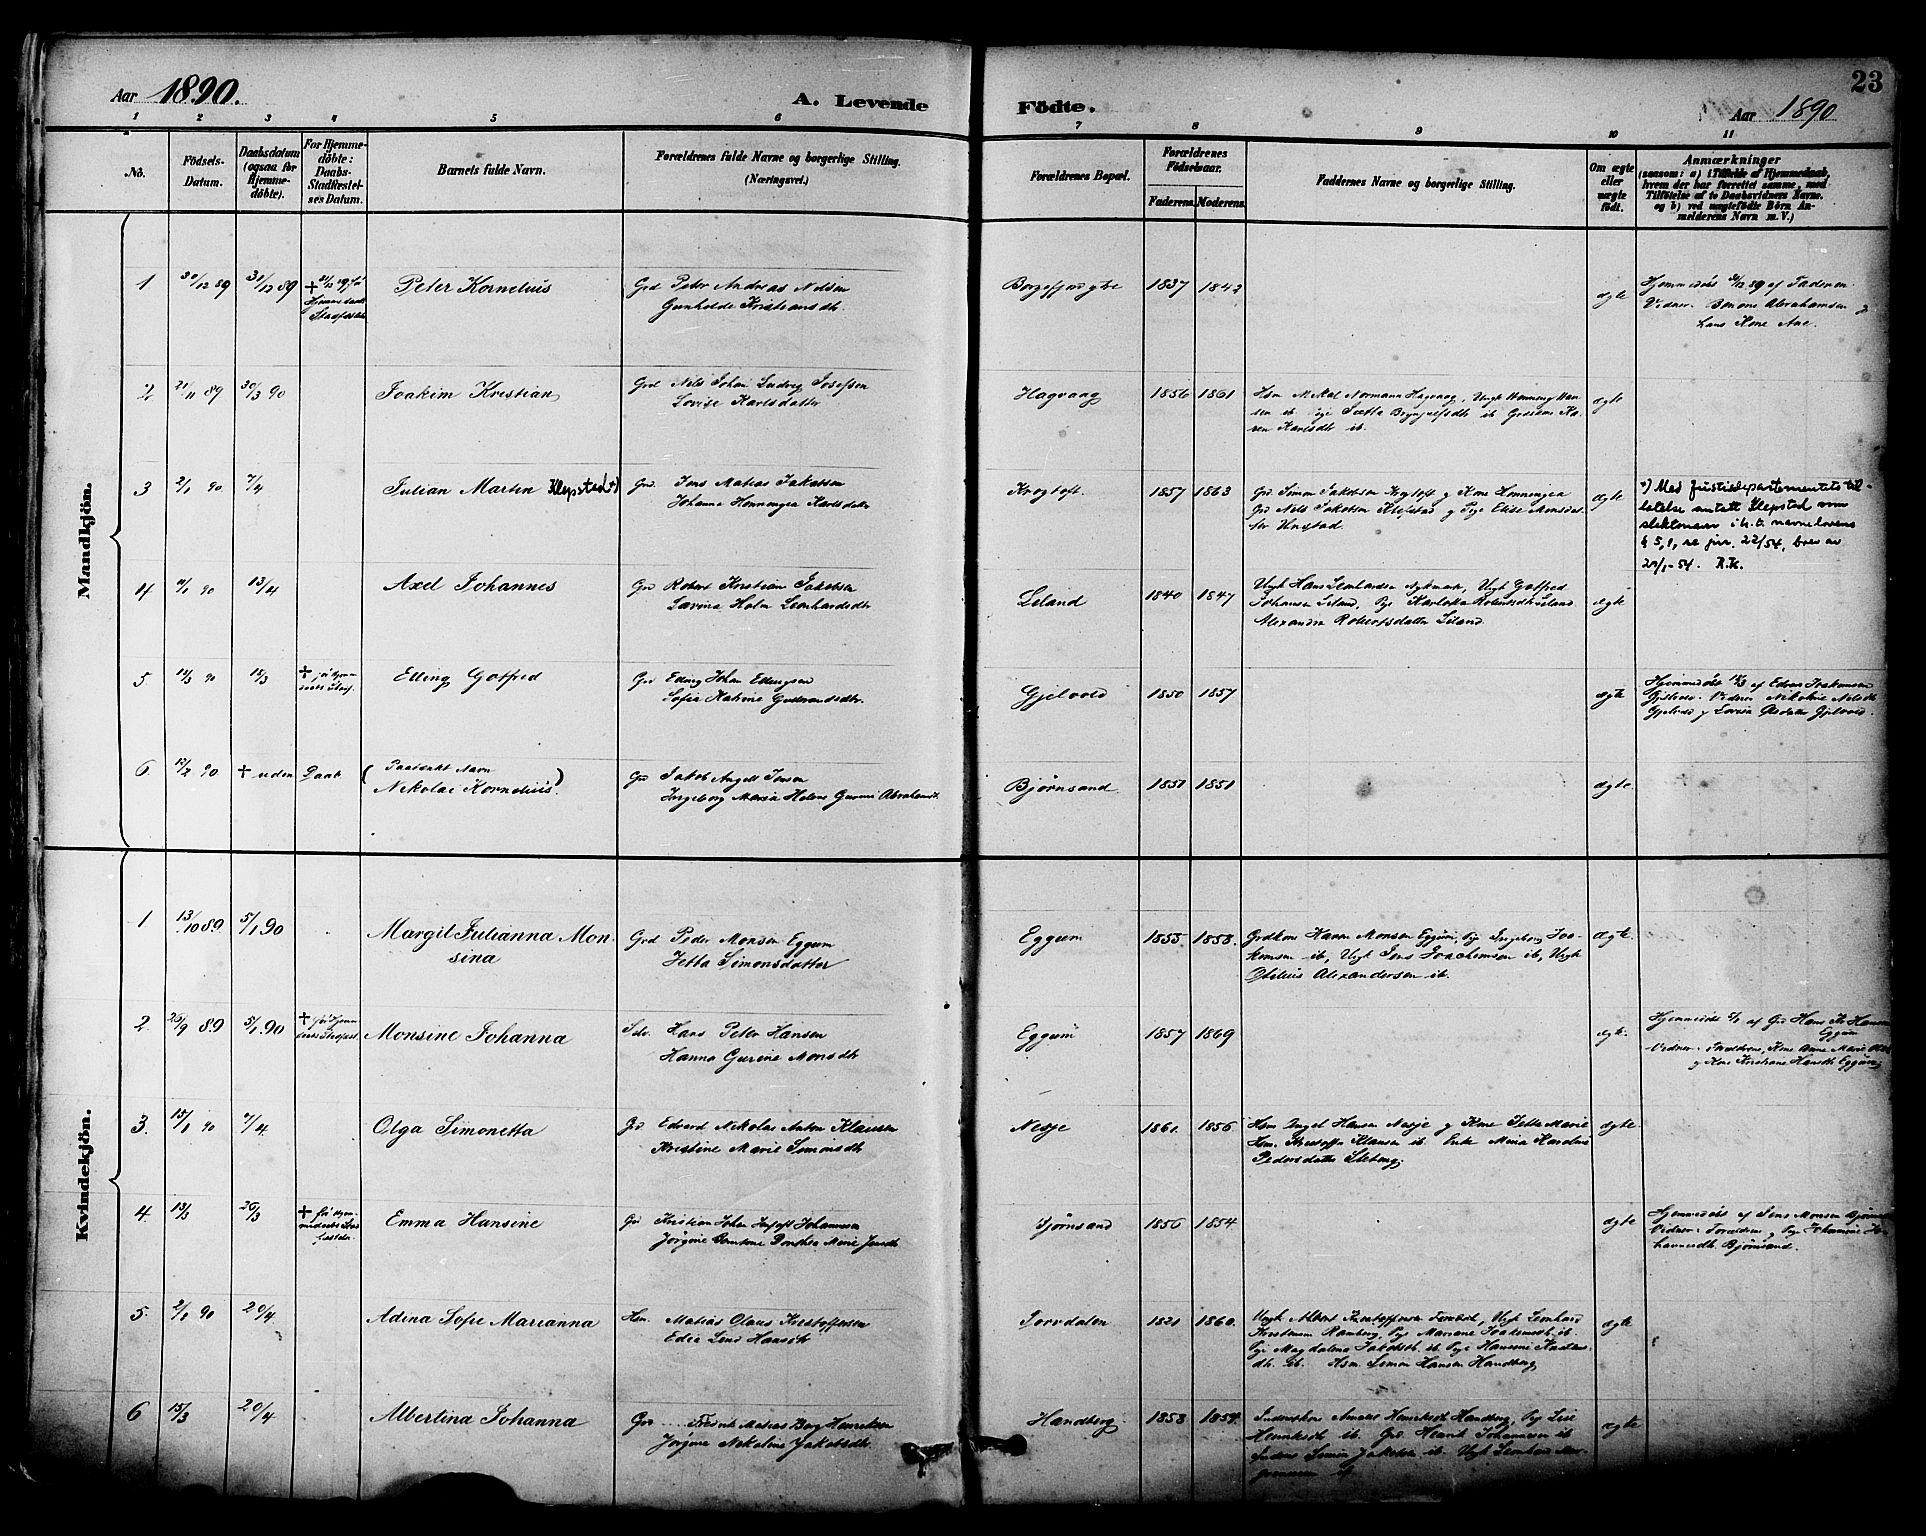 Aar 1890.
A. Levende Födte.
Aar 1890
23
1 2 3 4 5 6 7 8 9 10 11
No.
Födsels-
Datum.
Daabsdatum
(ogsaa for
Hjemme-
döbte).
For Hjemme-
döbte:
Daabs-
Stadfæstel-
ses Datum.
Barnets fulde Navn.
Forældrenes fulde Navne og borgerlige Stilling.
(Næringsvei.)
Forældrenes Bopæl.
Forældrenes
Födselsaar.
Faderens. Moderens.
Faddernes Navne og borgerlige Stilling.
Om ægte
eller
uægte
født.
Anmærkninger
(saasom: a) i Tilfælde af Hjemmedaab,
hvem der har forrettet samme, med
Tilföielse af to Daabsvidners Navne.
og b) ved uægtefödte Börn An-
melderens Navn m. V.)
Mandkjön.
1 30/12 89 31/12 89
Peter Kornelius
Grd Peter Andreas Nilsen
Gunhilde Kristiansdtr.
1837 1842
ægte
Hjemmedøbt 31/12 89 af Faderen
Vidner. Benone Abrahamsen
hans Kone Ane.
2 21/11 89 30/3 90
Joakim Kristian
Grd Nils Johan Ludvig Josefsen
Lovise Karlsdatter
Hagvaag
1856 1861
Hsm Mikal Normann Hagvaag, Ungk Henning Han-
sen ib
ren Karlsdtr ib.
ægte
3 2/1 90 7/4
Julian Martin Klepstad +)
Grd. Jens Matias Jakobsen
Johanna Henningea Karlsdatter
Krogtoft.
1857 1863
Grd Simon Jakobsen Krogtoft og Kone Henningea
Grd Nils Jakobsen Klepstad og Pige Elise Monsdat-
ter Unstad.
ægte
+) Med Justisdepartementets til-
latelse antatt Klepstad som
slektsnavn i h.t. navnelovens
§ 5, 1, se jnr. 22/54, brev av
20/1-54. R.K.
4 90 13/4
Axel Johannes
Grd Robert Kristian Jakobsen
Lavina Holm Leonhardsdtr
Leland
1840 1847
Ungk Hans Leonhardsen Ungk Gotfred
Johansen Leland, Pige Karlotta Robertsdtr Leland
Alexandra Robertsdatter Leland.
ægte
5 14/3 90 15/3
Elling Gotfred
Grd Eding Johan Ellingsen
Sofie Katrine Gudmundsdtr.
Gjelvold
1850 1857
ægte
Hjemmedøbt af Edvar Joakimsen
Gjelvold. Vidner Nikoline Nilsdtr
Gjelvold og Lovisa Olsdatter Gjelvold.
6. 12/2 90 + uden Daab
(Paatænkt Navn
Nikolai Kornelius)
Grd Jakob Angell Jensen
Ingeborg Maria Helene Gurine Abrahamsd.
Bjørnsand
1851 1851
ægte
Kvindekjön.
1 13/10 89. 5/1 90
Margit Julianna Mon-
sina
Grd Peder Monsen Eggum
Jetta Simonsdatter
Eggum
1855 1858.
Grdkone Maren Monsen Eggum, Pige Ingeborg Joa-
kimsen ib, Ungk Jens Joachimsen ib, Ungk
Otelius Alexandersen ib.
ægte.
2 25/9 89 5/1 90
Monsine Johanna
Hans Peter Hansen
Hanna Gurine Monsdtr
Eggum
1857 1869
ægte.
Hjemmedøbt af Grd Hans Hansen
Eggum
Vidner Forældrene, Kone Anne Marie
og Kone Kristiane Hansdtr Eggum
3. 15/1 90 7/4.
Olga Simonetta
Grd Edvard Nikolai Anton Klausen
Kristine Marie Simonsdtr
Nesje
1861. 1856
Hsm Ingel Hansen Nesje og Kone Jette Marie
Hsm. Kristoffer Klausen ib. Enke Maria Karoline
Pedersdatter Steberg
ægte.
4. 13/3 26/3
Emma Hansine
Grd Kristian Johan Johannesen
Jørgine Dorthea Marie Jensdtr
Bjørnsand
1856 1854.
ægte
Hjemmedøbt af Jens Monsen
Vidner Forældrene og Pige Johannine Jo-
hannesdtr. Bjørnsand.
5. 2/1 90 20/4.
Adina Sofie Marianna
Hsm. Matias Olaus Kristoffersen
Edia Lind Hansdtr
Torvdalen
1821 1860.
Ungk Albert Kristoffersen Torvdal, Ungk Leonhard
Kristensen Ramberg, Pige Mariane Joakimsdtr ib.
Pige Magdalena Jakobsdtr. ib. Pige Hansine
ib. Hsm Simon Hansen Handberg
ægte
6 15/3 20/4
Albertina Johanna
Grd Fredrik Matias Berg Henriksen
Jørgine Nikoline Jakobsdtr.
Handberg.
1858 1859.
Amalie Henriksdtr Handberg, Pige Lise
Henriksdtr ib. Grd. Henrik Johannesen ib
Simon Jakobsen ib. Ungk Leonhard
ægte